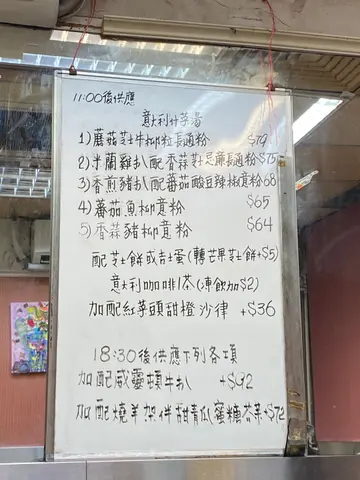 11:00後供應
意大利什菜湯
1) 蘑菇芝士牛柳粒長通粉 $79
2) 米蘭雞扒配香蒜長通粉 $75
3) 香煎豬扒配蕃茄酸豆辣椒意粉 68
4) 蕃茄魚柳意粉 $65
5) 香蒜豬柳意粉 $64
配芝士餅或吉士蛋(轉芒果芝士餅+$5)
意大利咖啡/茶(凍飲加$2)
加配紅菜頭甜橙沙律 +$36
18:30後供應下列各項
加配威靈頓牛扒 +$92
加配燒羊架伴甜青瓜蜜糖芥菜+$72